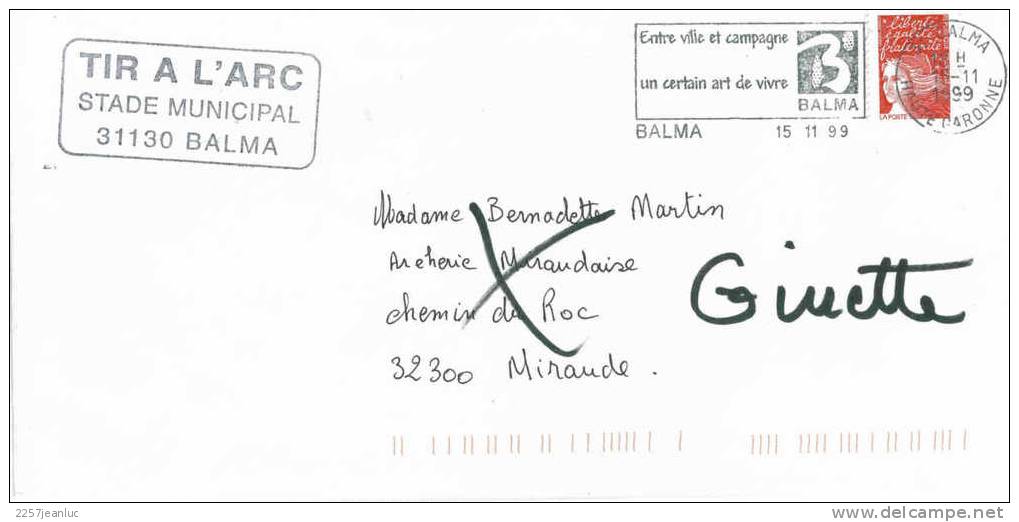 TIR A L'ARC
STADE MUNICIPAL
31130 BALMA
Entre ville et campagne
un certain art de vivre
BALMA
BALMA 15 11 99
liberté
égalité
fraternité
LA POSTE
BALMA
H
-11
1999
GARONNE
Madame Bernadette Martin
Archerie Mirandaise
chemin du Roc
32300 Mirande.
Ginette
2257jeanluc
delcampe.net